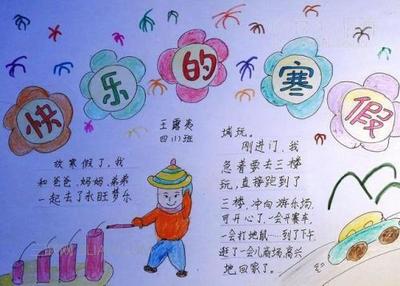 快乐的寒假
王露
放寒假了，我
和爸爸、妈妈、弟弟
一起去了永旺梦乐
城玩。
刚进门，我
急着要去三楼
玩，直接跑到了
三楼，冲向游乐场，
可开心了，一会开赛车，
一会打地鼠……到了下午
逛了一会儿商场，高兴
地回家了。